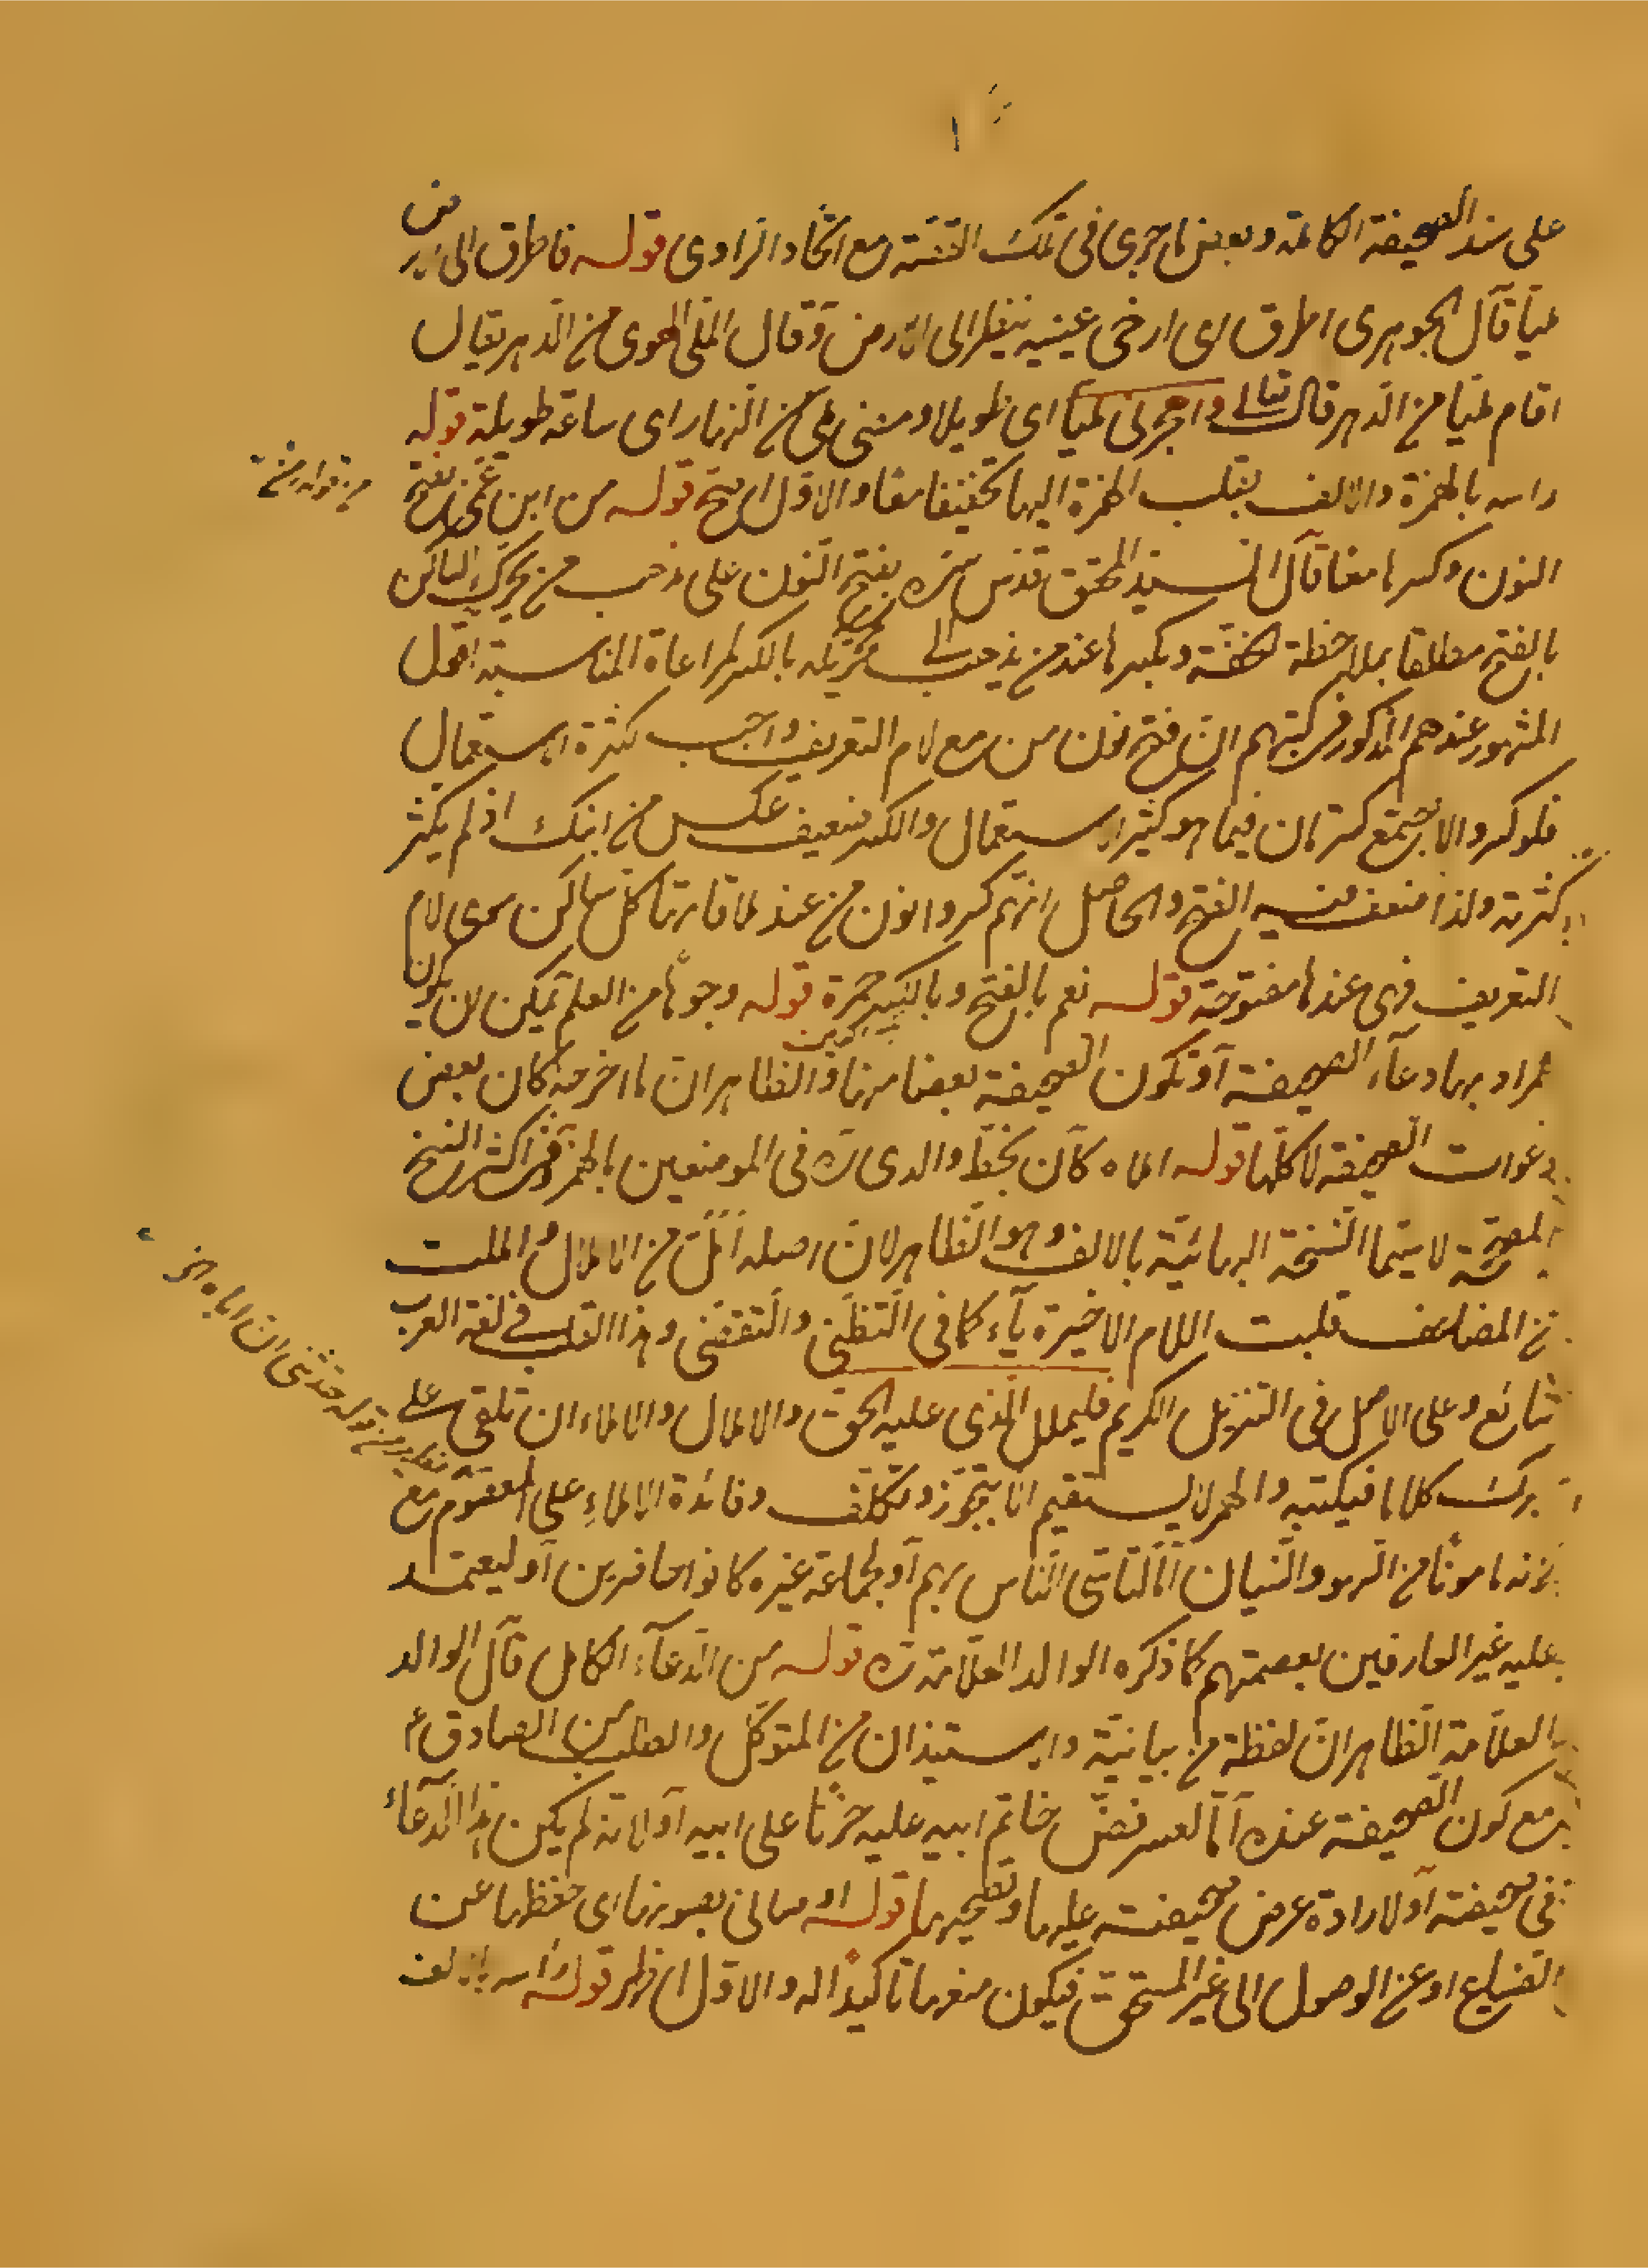 على سند الصحيفة الكاملة وبعض ما جرى في تلك القصّة مع اتّحاد الراوي قوله فاطرق الى الارض
مليّا قال الجوهري اطرق اى ارخى عينيه ينظر الى الارض وقال الملىّ الهوى من الدّهر يقال
اقام مليّا من الدهر قال تعالى واهجرنى مليّا اى طويلا ومضى ملىّ من النهار اى ساعة طويلة قوله
راسه بالهمزة والالف بقلب الهمزة اليها تخفيفا معا والاوّل ارجح قوله من ابن بفتح
النون وكسرها معا قال السيّد المحقق قدّس سرّه بفتح النون على مذهب من يحرّك الساكن
بالفتح مطلقا بملاحظة الخفّة وبكسرها عند من يذهب الى تحريكه بالكسر لمراعاة المناسبة اقول
المشهور عندهم المذكور في كتبهم ان فتح نون من مع لام التعريف واجب لكثرة الاستعمال
فلو كسر والاجتمع كسرتان فيما هو كثير الاستعمال والكسر ضعيف عكس من ابنك اذ لم يكثر
كثرته ولذا ضعف فيه الفتح والحاصل انهم كسروا نون من عند ملاقاتها كل ساكن سوى لام
التعريف فهى عندها مفتوحة قوله نعم بالفتح وبالكسر قوله وجوها من العلم يمكن ان يكون
المراد بها دعاء الصحيفة او تكون الصحيفة بعضا منها والظاهر ان ما اخرجه كان بعض
دعوات الصحيفة لا كلها قوله املاه كان بخطّ والدى ره في الموضعين بالهمز وفي اكثر النسخ
المصححة لا سيّما النسخة البهائيّة بالالف وهو الظاهر لان اصله املّ من الاملال والمللت
من المضاعف قلبت اللام الاخيرة ياء كما في التظنّى والتقضّى وهذا القلب في لغة العرب
شائع وعلى الاصل في التنزيل الكريم فليملل الذي عليه الحق والاملال والاملاء ان تلقى على
غيرك كلاما فيكتبه والهمز لا يستقيم الا بتجوّز وتكلّف وفائدة الاملاء على المعصوم مع
كونه مامونا من السهو والنسيان امّا لتأسّى الناس بهم او لجماعة غيره كانوا حاضرين او ليعتمد
عليه غير العارفين بعصمتهم كما ذكره الوالد العلّامة ره قوله من الدّعاء الكامل قال الوالد
العلّامة الظاهر ان لفظة من بيانيّة والاستيذان من المتوكّل والطلب من الصادق ع
مع كون الصحيفة عنده امّا لعسر فضّ خاتم ابيه عليه حزنا على ابيه او لانه لم يكن هذا الدّعاء
في صحيفته او لارادة عرض صحيفته عليها وتصحيحها قوله اوصانى بصونها اى حفظها عن
التضييع او عن الوصول الى غير المستحق فيكون منعها تاكيدا له والاوّل اظهر قوله راسه بالالف
من قوله
من قوله حدّثنى ان اباه